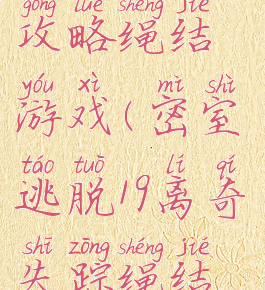 gōng lüè shéng jié
攻略绳结
yóu xì mì shì
游戏(密室
táo tuō lí qí
逃脱19离奇
shī zōng shéng jié
失踪绳结